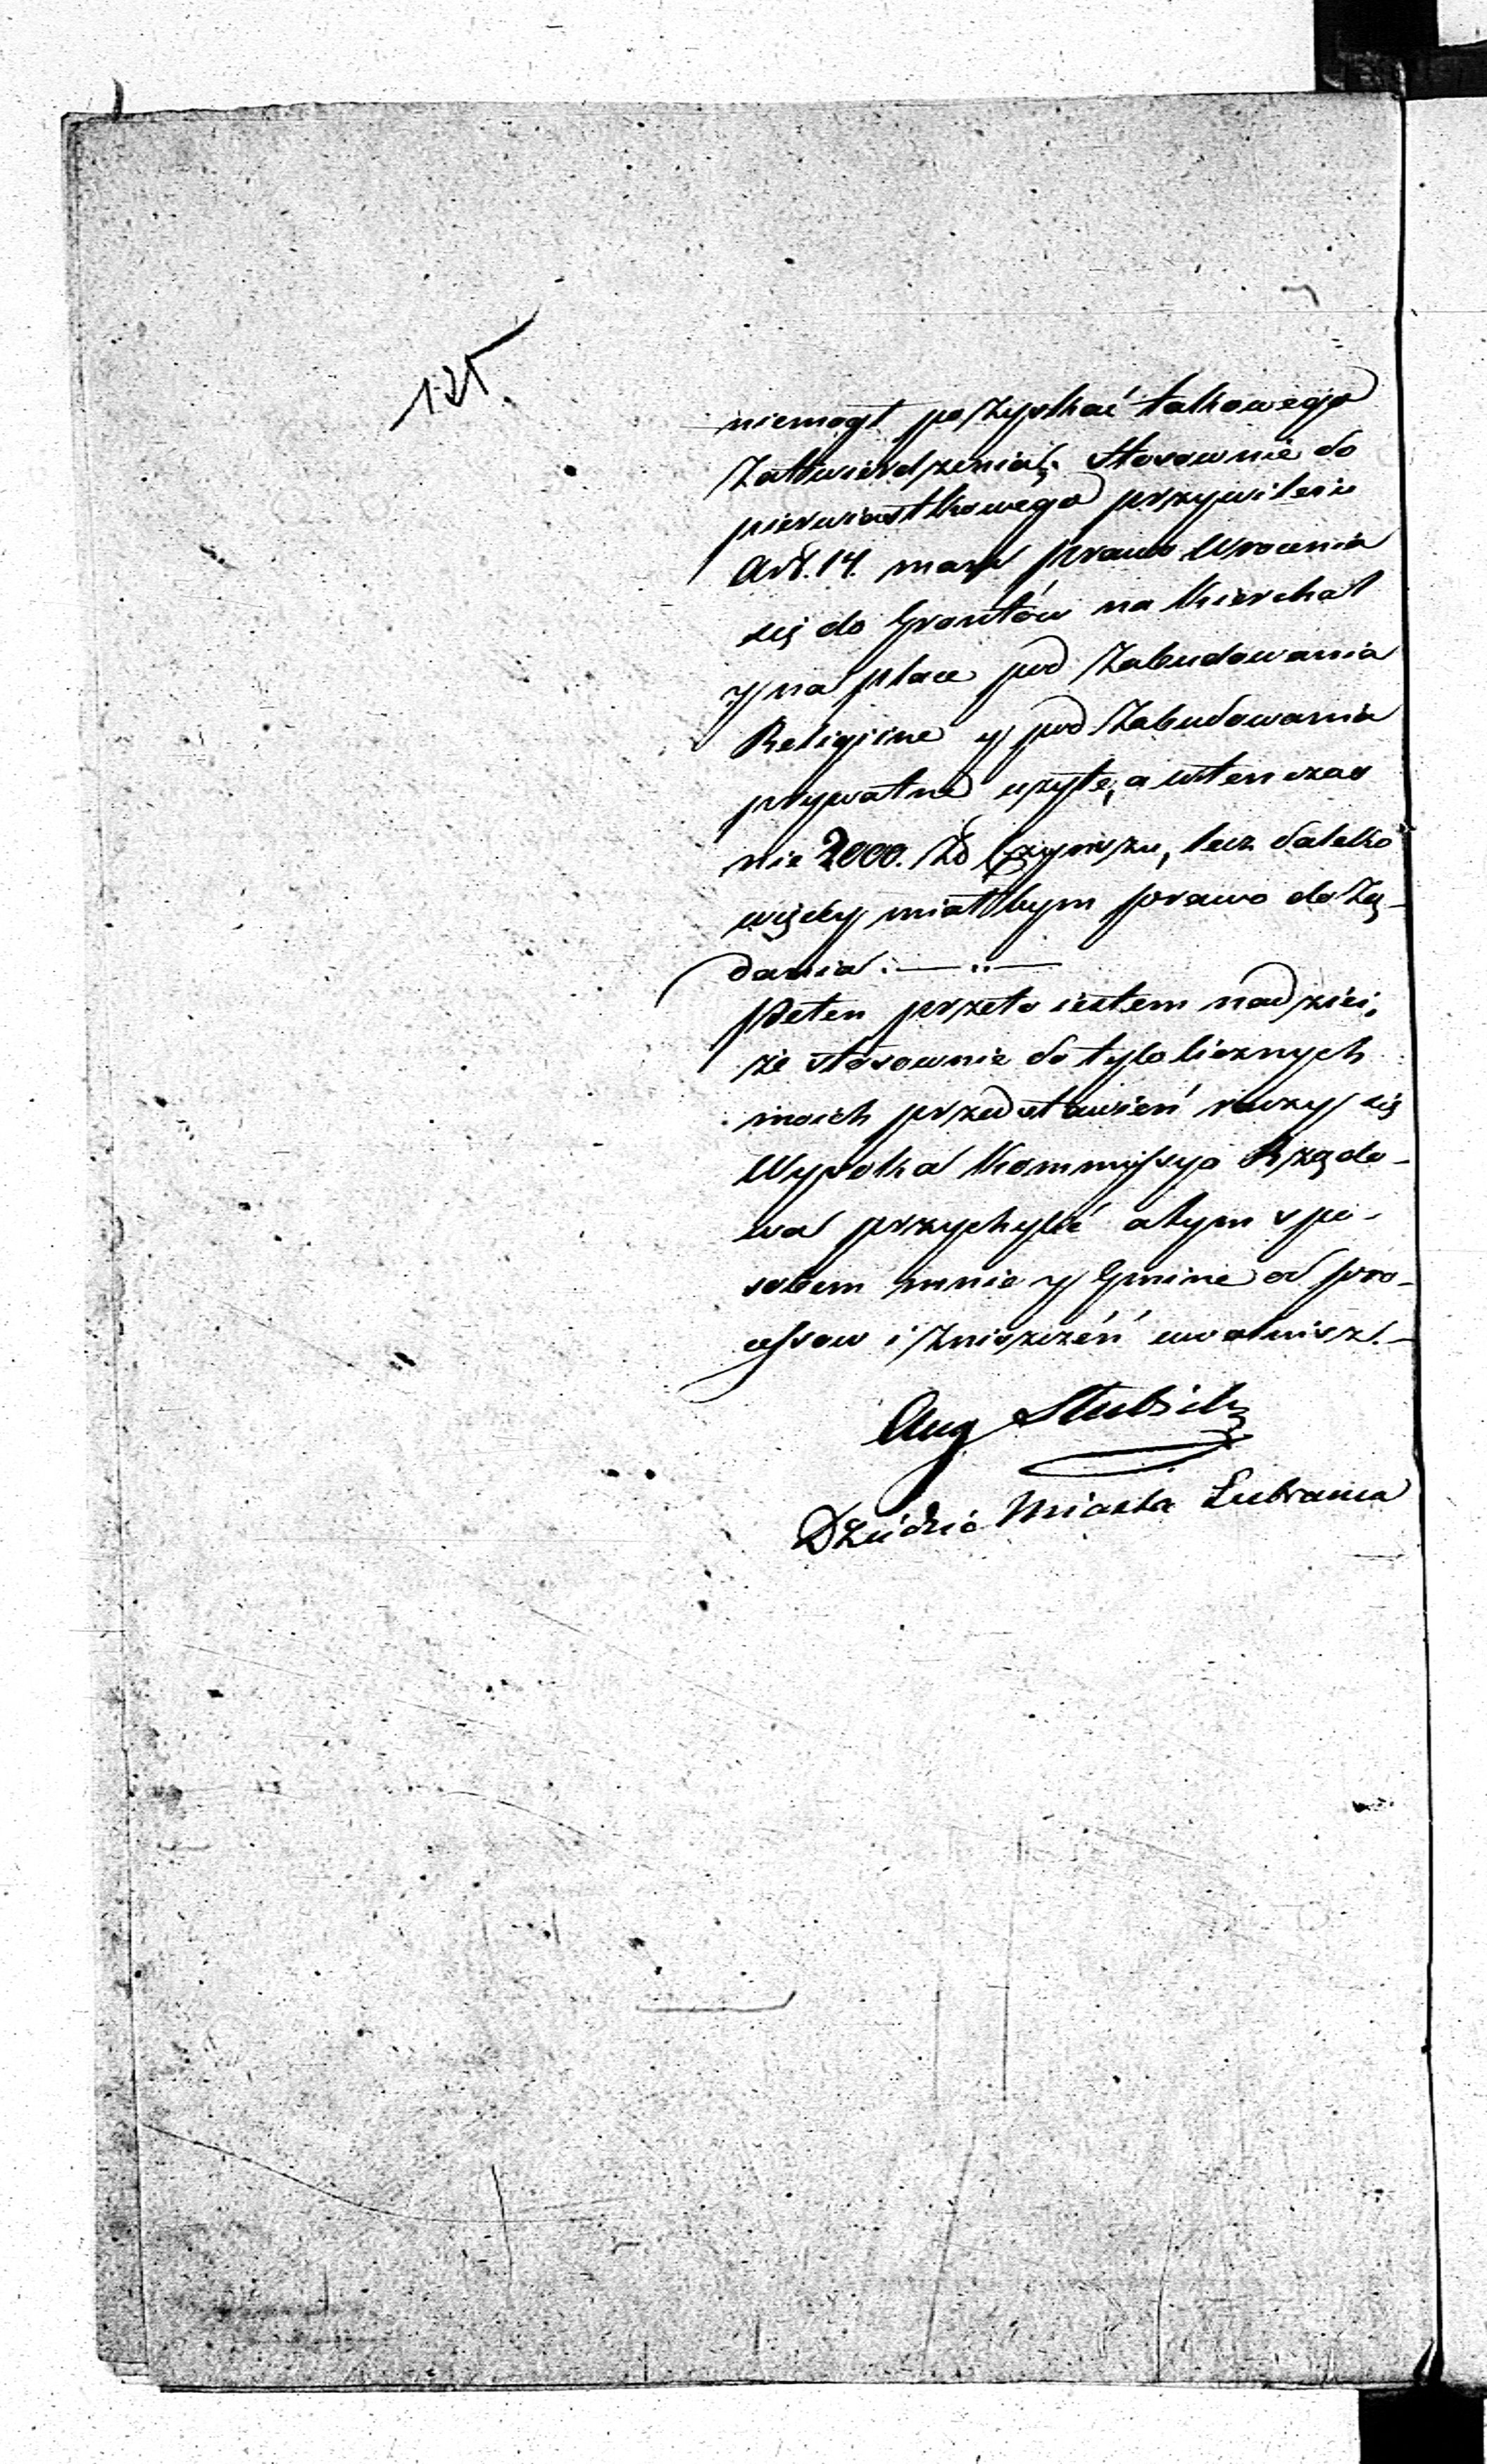 125
niemogł pozyskać takowego
Zatwierdzenia, stosownie do
pierwiastkowego przywileiu
Art. 14. mam prawo Wrocenia
się do Grontów na Kierchał
y na place pod Zabudowania
Religiine y pod Zabudowania
prywatne użyte, a wtenczas
nie 2000. Zł Czynszu, lecz daleko
więcy miałbym prawo do Zą-
dania.
Peten przeto iestem nadziei,
że stosownie do tylo licznych
moich przedstawień raczy się
Wysoka Kommissya Rządo-
wa przychylić a tym spo-
sobem mnie y Gmine od pro-
cessow i Zniszczeń uwolnisz.
Aug Słubicki
Dziedzic Miasta Lubrania